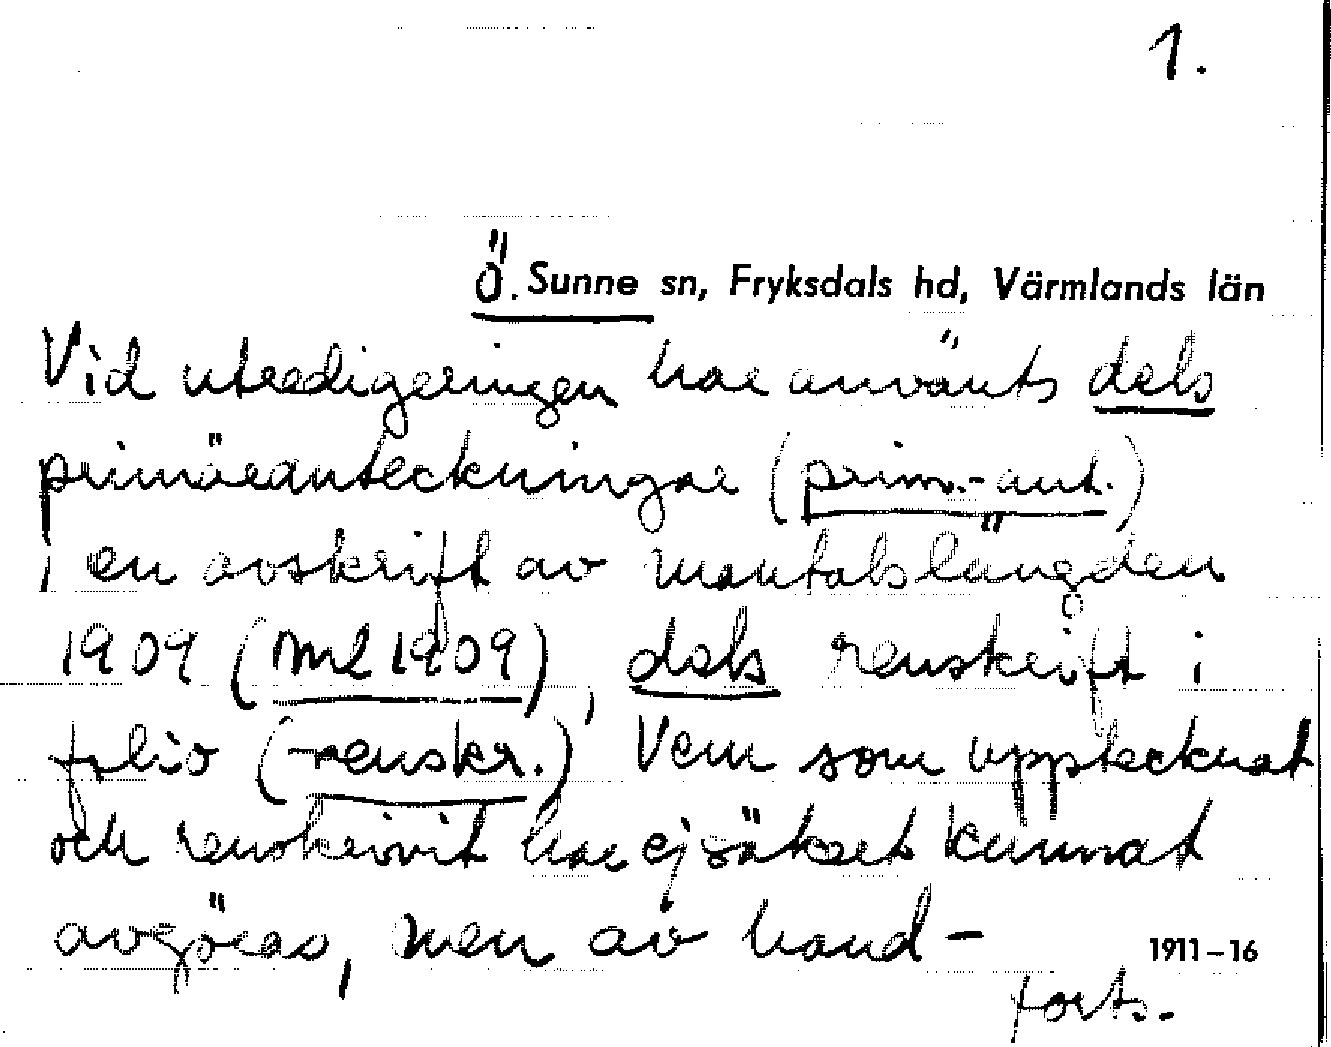 1.
Ö. Sunne sn, Fryksdals hd, Värmlands län
Vid utredigeringen har använts dels
primäranteckningar (prim.-ant.)
i en avskrift av mantalslängden
1909 (Ml 1909), dels renskrift i
folio (-renskr.) Vem som upptecknat
och renskrivit har ej säkert kunnat
avgöras, men av hand-
1911-16
forts.